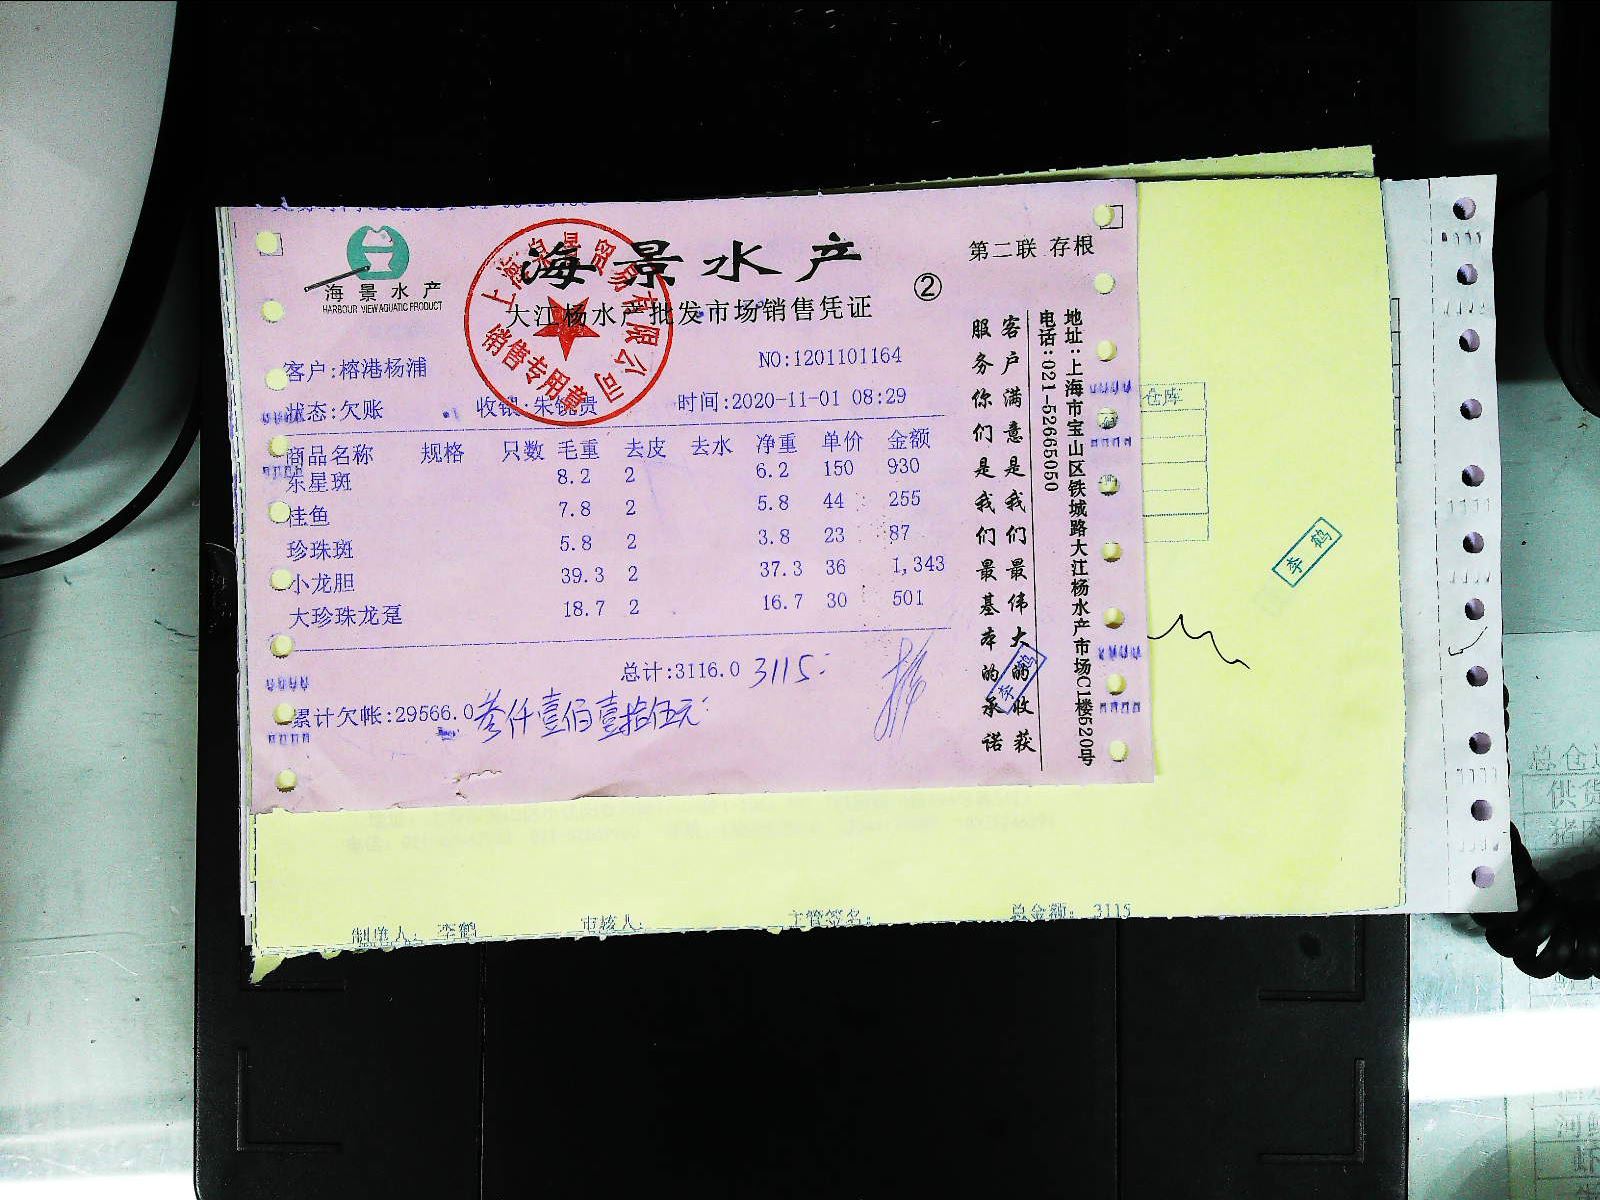 海景水产
HARBOUR VIEW AQUATIC PRODUCT
海景水产
大江杨水产批发市场销售凭证
②
第二联 存根
贸易有限公司
销售专用章
客户:榕港杨浦
NO:1201101164
状态:欠账 收银:朱锐贵 时间:2020-11-01 08:29
商品名称 规格 只数 毛重 去皮 去水 净重 单价 金额
东星斑 8.2 2 6.2 150 930
桂鱼 7.8 2 5.8 44 255
珍珠斑 5.8 2 3.8 23 87
小龙胆 39.3 2 37.3 36 1,343
大珍珠龙趸 18.7 2 16.7 30 501
总计:3116.0 3115
累计欠帐:29566.0 叁仟壹佰壹拾伍元
客户满意是我们最伟大的收获
服务你们是我们最基本的承诺
地址:上海市宝山区铁城路大江杨水产市场C1楼520号
电话:021-52665050
仓库
李鹤
制单人: 李鹤 审核人: 主管签名: 总金额: 3115
总仓
供货
河